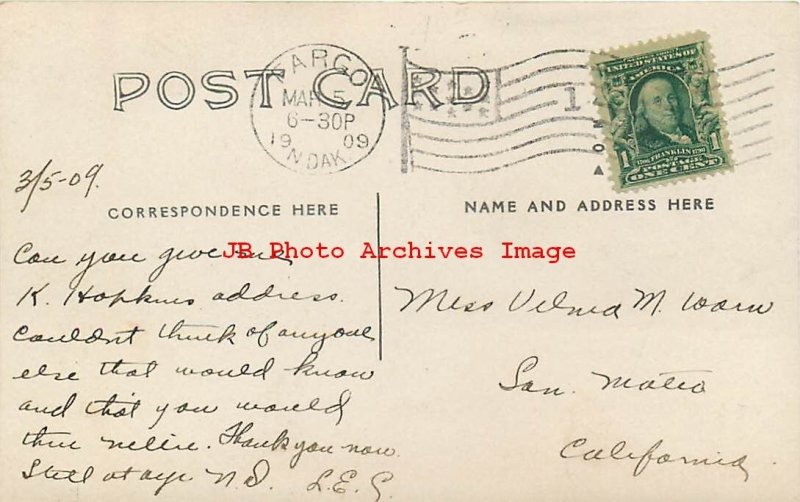 POST CARD
FARGO
MAR 5
6-30P
1909
N.DAK.
1
UNITED STATES OF
AMERICA
1706 FRANKLIN 1790
POSTAGE
ONE CENT
1 1
3/5-09.
CORRESPONDENCE HERE
NAME AND ADDRESS HERE
JB Photo Archives Image
Can you give me
K. Hopkins address.
Couldnt think of anyone
else that would know
and that you would
thru Nellie. Thank you now.
Still at N.D. L.E.G.
Miss Velma M.
San. Mateo
California